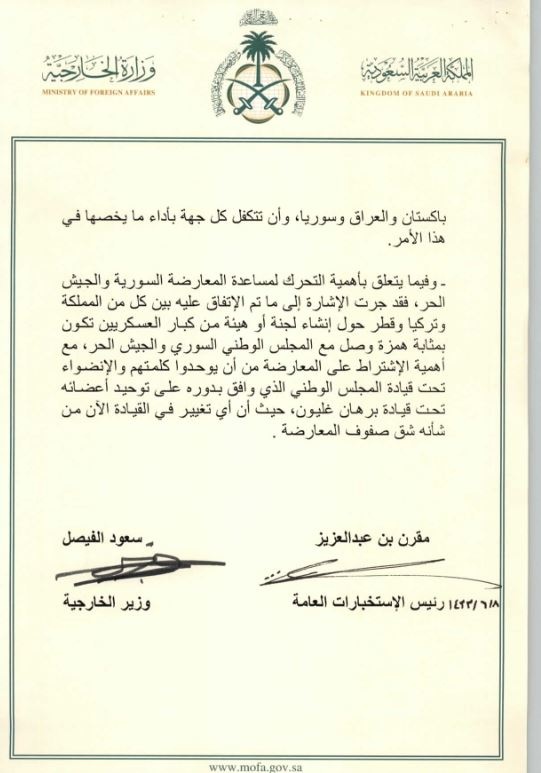 وزارة الخارجية
المملكة العربية السعودية
MINISTRY OF FOREIGN AFFAIRS
KINGDOM OF SAUDI ARABIA
باكستان والعراق وسوريا، وأن تتكفل كل جهة بأداء ما يخصها في
هذا الأمر.
ـ وفيما يتعلق بأهمية التحرك لمساعدة المعارضة السورية والجيش
الحر، فقد جرت الإشارة إلى ما تم الإتفاق عليه بين كل من المملكة
وتركيا وقطر حول إنشاء لجنة أو هيئة من كبار العسكريين تكون
بمثابة همزة وصل مع المجلس الوطني السوري والجيش الحر، مع
أهمية الإشتراط على المعارضة من أن يوحدوا كلمتهم والإنضواء
تحت قيادة المجلس الوطني الذي وافق بدوره على توحيد أعضائه
تحت قيادة برهان غليون، حيث أن أي تغيير في القيادة الآن من
شأنه شق صفوف المعارضة .
مقرن بن عبدالعزيز
سعود الفيصل
١٤٣٣/٦/٨ رئيس الإستخبارات العامة
وزير الخارجية
www.mofa.gov.sa